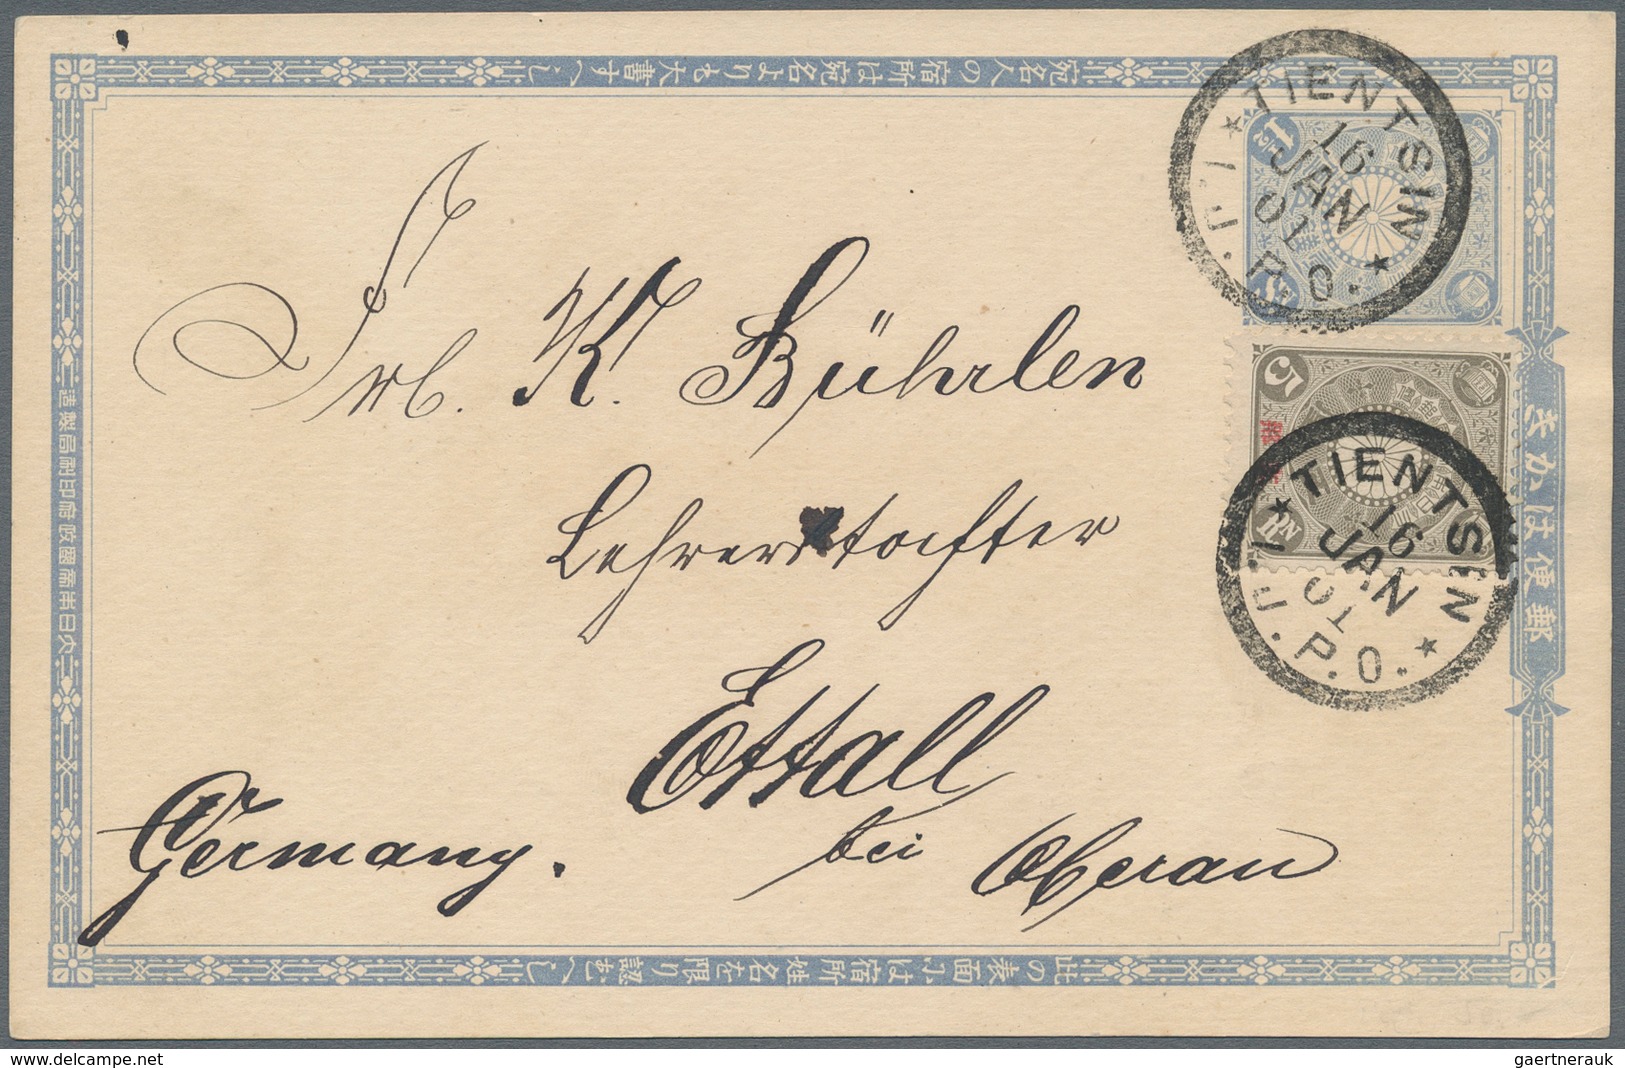 宛名人の宿所は宛名よりも大書すへし
TIENTSIN
16
JAN
01
I.J.P.O.
1½
5
TIENTSIN
16
JAN
01
I.J.P.O.
きかは便郵
K. Bührlen
Lehrerstochter
Ettall
bei Oberau
Germany.
此の表面には宿所姓名を限り認むへし
造製局刷印府政國帝本日大
gaertnerauk